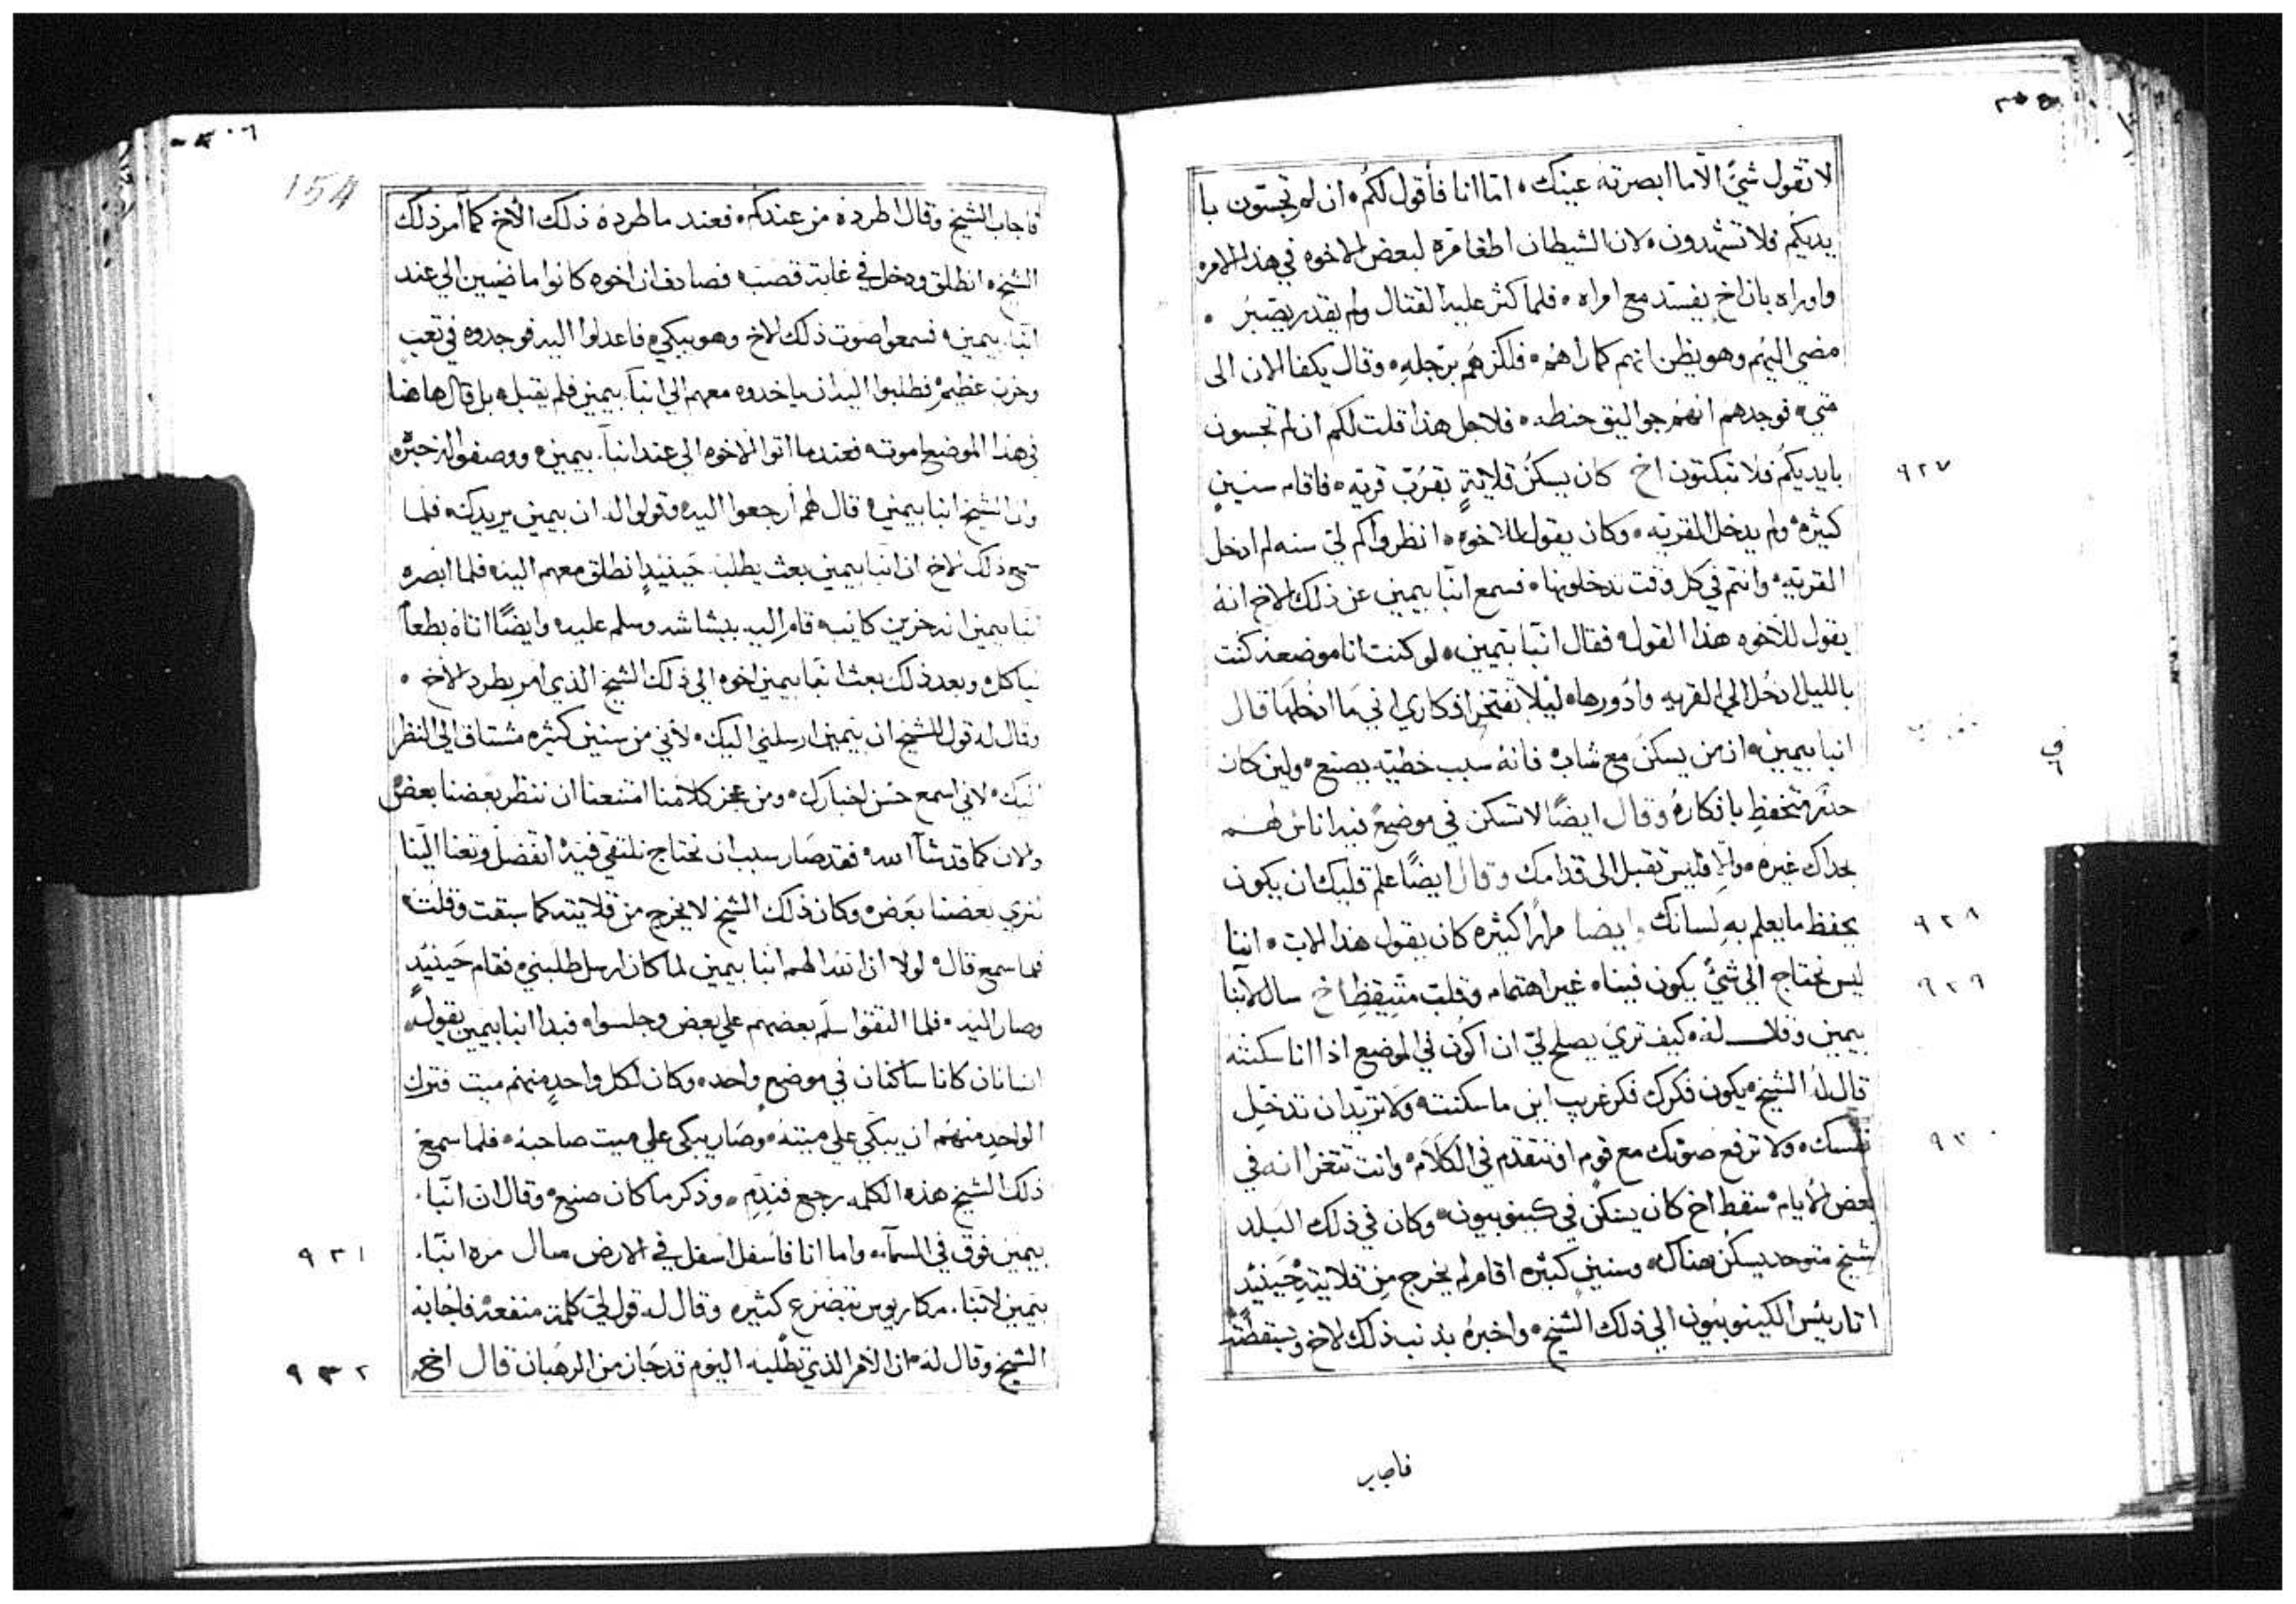 لا تقول شيً الا ما ابصرته عينيك ۰ اما انا فأقول لكم ۰ ان لم تجسون با
يديكم فلا تشهدون ۰ لان الشيطان اطغا مره لبعض الاخوه في هذا الامر ۰
واوراه بان اخ يفسد مع امراه ۰ فلما كثر عليه القتال ولم يقدر يصبر ۰
مضي اليهم وهو يظن انهم كما راهم ۰ فلكزهم برجله ۰ وقال يكفا الان الى
متي ۰ فوجدهم انهم جواليق حنطه ۰ فلاجل هذا قلت لكم ان لم تجسون
بايديكم فلا تبكتون اخ كان يسكن قلاية بقرب قريه ۰ فاقام سنين
٩٢٧
كثيره ولم يدخل القريه ۰ وكان يقول للاخوه ۰ انظروا كم لي سنه لم ادخل
القريه ۰ وانتم في كل وقت تدخلونها ۰ فسمع انبا بيمين عن ذلك الاخ انه
يقول للاخوه هذا القول ۰ فقال انبا بيمين ۰ لو كنت انا موضعه كنت
بالليل ادخل الي القريه وادورها ۰ ليلا تفتخر افكاري اني ما ادخلها قال
انبا بيمين ۰ ان من يسكن مع شاب فانه سبب خطيه يصنع ۰ ولين كان
حذر متحفظ بافكاره وقال ايضًا لا تسكن في موضع فيه اناس لهم
غيره ۰ والا فليس تقبل الى قدامك وقال ايضًا علم قلبك ان يكون
يحفظ ما يعلم به لسانك ايضا مرارًا كثيره كان يقول هذا الاب ۰ اننا
٩٢٨
ليس نحتاج الي شي يكون فينا ۰ غير اهتمام وقلب متيقظ اخ سال لانبا
٩٢٩
بيمين وقال له ۰ كيف تري يصلح لي ان اكون في الموضع اذا انا سكنته
قال له الشيخ ۰ يكون فكرك فكر غريب اين ما سكنت ۰ ولا تريد ان تدخل
نفسك ۰ ولا ترفع صوتك مع قوم او تتقدم في الكلام ۰ وانت انه في
٩٣٠
بعض الايام سقط اخ كان يسكن في كينوبيون ۰ وكان في ذلك البلد
شيخ متوحد يسكن هناك ۰ وسنين كثيره اقام لم يخرج من قلايته حينيد
اتا ريس الكينوبيون الي ذلك الشيخ ۰ واخبره بذنب ذلك الاخ وبسقطته
فاجاب
154
فاجاب الشيخ وقال اطرده من عندكم ۰ فعند ما طرده ذلك الاخ كما امر ذلك
الشيخ ۰ انطلق ودخل في غابة قصب ۰ فصادف ان اخوه كانوا ماضيين الي عند
انبا بيمين ۰ فسمعوا صوت ذلك الاخ وهو يبكي ۰ فاعدلوا اليه فوجدوه في تعب
وحزن عظيم ۰ فطلبوا اليه ان ياخدوه معهم الي انبا بيمين فلم يقبل ۰ بل قال هاهنا
في هذا الموضع اموت ۰ فعند ما اتوا الاخوه الي عند انبا بيمين ۰ ووصفوا له خبره
وان الشيخ انبا بيمين ۰ قال لهم أرجعوا اليه ۰ وقولوا له ان بيمين يريدك ۰ فلما
سمع ذلك الاخ ان انبا بيمين بعث يطلبه حينيدٍ انطلق معهم اليه ۰ فلما ابصره
انبا بيمين انه حزين كايب ۰ قام اليه ببشاشه وسلم عليه ۰ وايضًا اتاه بطعاً
ليأكل ۰ وبعد ذلك بعث انبا بيمين اخوه الي ذلك الشيخ الذي امر بطرد الاخ ۰
وقال له قول للشيخ ان بيمين ارسلني اليك ۰ لأني من سنين كثيره مشتاق الي النظر
اليك ۰ لاني اسمع حسن اخبارك ۰ ومن عجز كلامنا امتنعنا ان ننظر بعضنا بعض
والان كما قد شآ الله ۰ فقد صار سبب ان نحتاج نلتقي فيه ۰ اتفضل وتعنا الينا
لنري بعضنا بعض ۰ وكان ذلك الشيخ لا يخرج من قلايته كما سبقت وقلت ۰
فلما سمع قال ۰ لولا ان الله الهم انبا بيمين لما كان ارسل طلبني ۰ فقام حينيد
وصار اليه ۰ فلما التقوا سلم بعضهم علي بعض وجلسوا ۰ فبدا انبا بيمين يقول
انسانان كانا ساكنان في موضع واحد ۰ وكان لكل واحدٍ منهم ميت فترك
الواحد منهم ان يبكي علي ميته ۰ وصار يبكي علي ميت صاحبه ۰ فلما سمع
ذلك الشيخ هذه الكلمه رجع فندم ۰ وذكر ما كان صنع ۰ وقال ان انبا
بيمين فوق في السمآ ۰ واما انا فاسفل اسفل في الارض سال مره انبا
٩٣١
بيمين لانبا مكاريوس بتضرع كثيره وقال له قول لي كلمة منفعه فاجابه
الشيخ وقال له ۰ ان الامر الذي تطلبه اليوم قد جاز من الرهبان قال اخ
٩٣٢